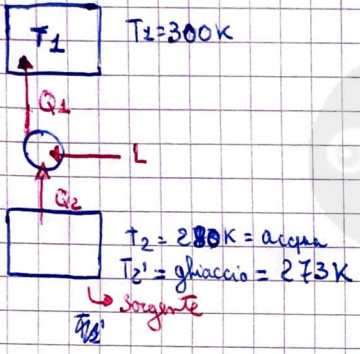 T1 T1=300K
Q1
L
Q2
T2 = 280K = acqua
T2' = ghiaccio = 273K
↳ sorgente